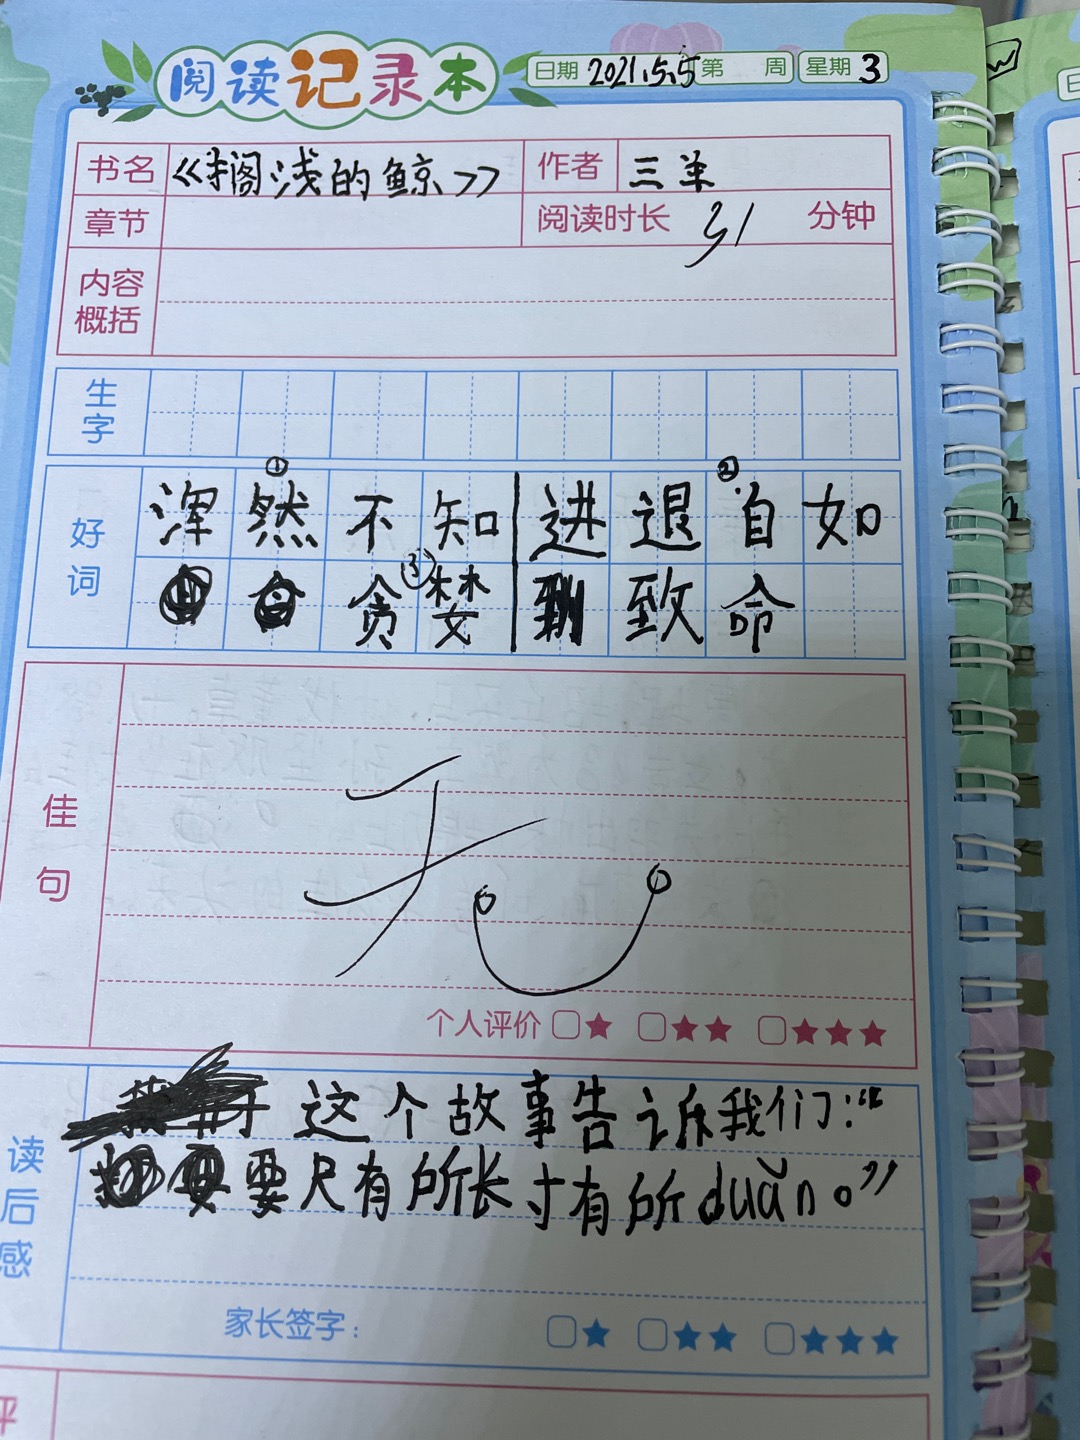 阅读记录本
日期 2021.5.5 第 周 星期 3
书名 《搁浅的鲸》 作者 三羊
章节 阅读时长 31 分钟
内容
概括
生
字
①
②
好
词
浑然不知 进退自如
③
贪婪 致命
佳
句
无
个人评价 ★ ★★ ★★★
读
后
感
这个故事告诉我们：“
要尺有所长寸有所duǎn。”
家长签字： ★ ★★ ★★★
评